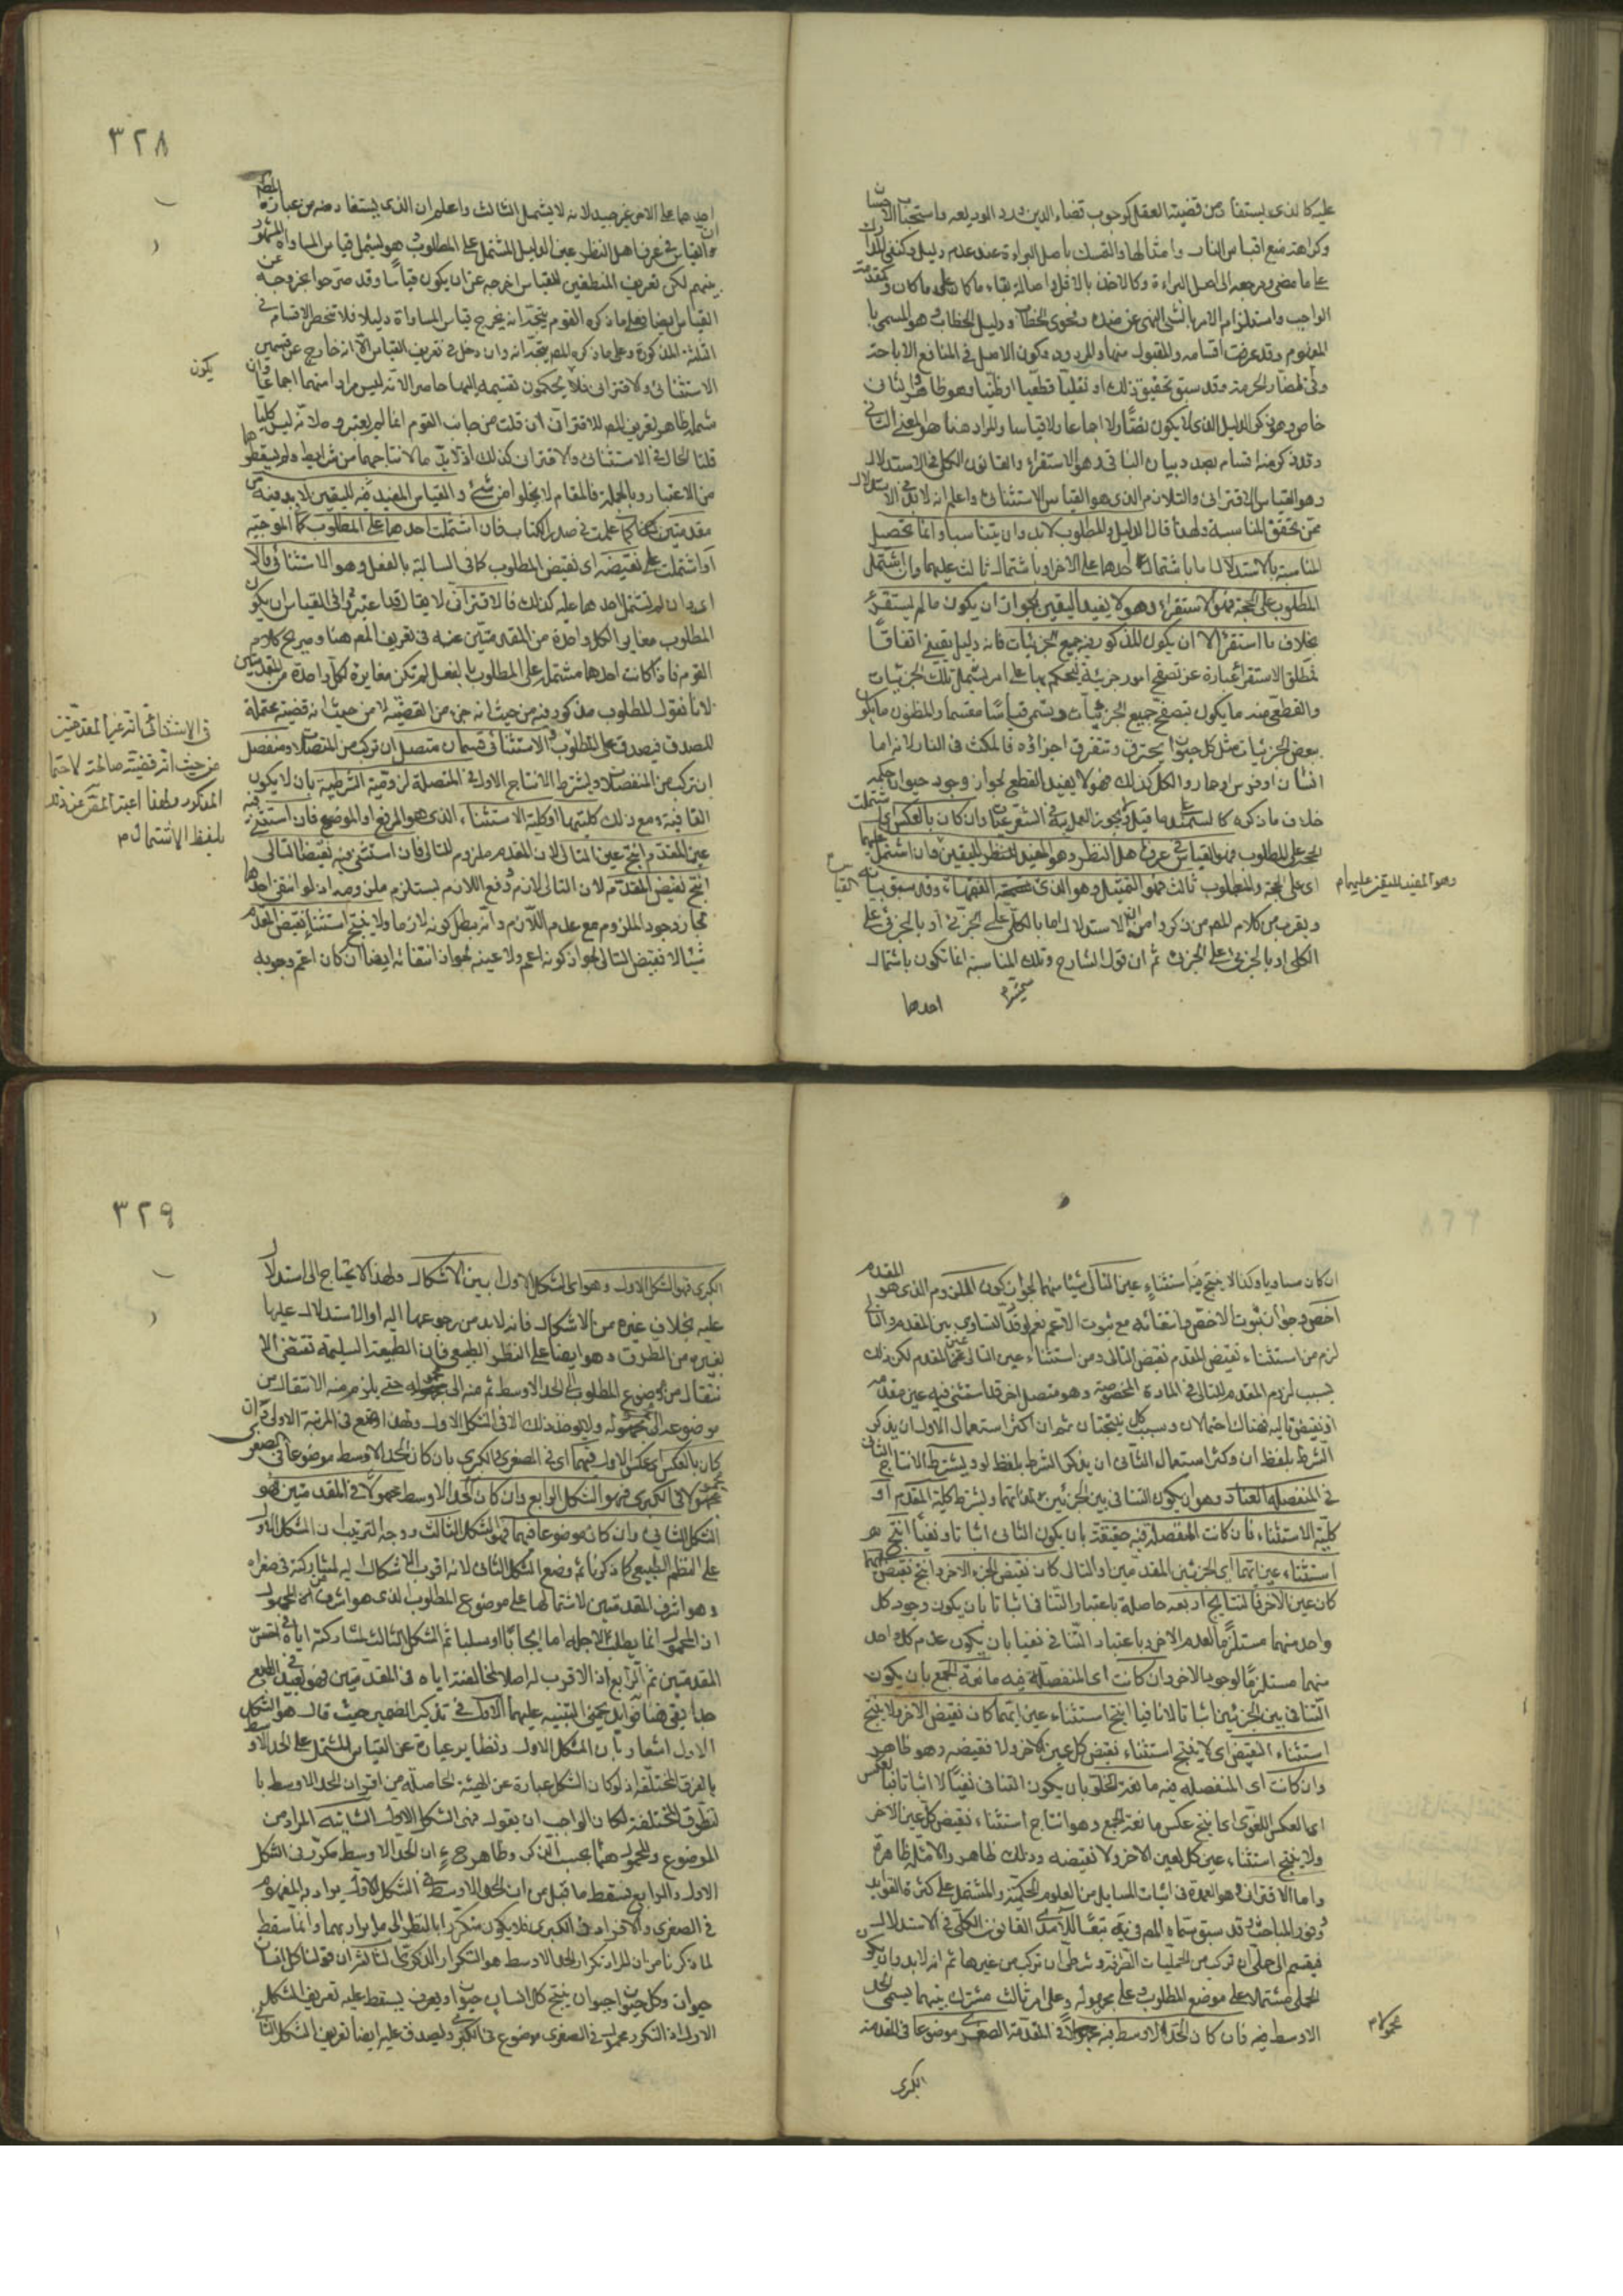 عليه كالذى يستفاد من قضية العقل كوجوب قضاء الدين ورد الوديعه واستحباب الاحسان
وكراهة منع اقتباس النار وامثالها والتمسك باصل البراءة عند عدم دليل
على ما مضى ومرجعه الى اصل البراءة وكالاخذ بالاقل واصالة بقاء ما كان على ما كان وكمقدمة
الواجب واستلزام الامر بالشئ النهى عن ضده وفحوى الخطاب ودليل الخطاب وهو المسمى با
لمفهوم وقد عرفت اقسامه والمقبول منها والمردود وكون الاصل فى المنافع الاباحة
وفى المضار الحرمة وقد سبق تحقيق ذلك او نقليا قطعيا او ظنيا وهو ظاهر والثانى
خاص وهو ذكر الدليل الذى لا يكون نصا ولا اجماعا ولا قياسا والمراد هنا هو المعنى الثانى
وقد ذكر منه اقسام بصدد بيان الباقى وهو الاستقراء والقانون الكلى فى الاستدلال
وهو القياس الاقترانى والتلازم الذى هو القياس الاستثنائى واعلم انه لابد فى الاستدلال
من تحقق المناسبة ولهذا قال الدليل والمطلوب لابد وان يتناسبا وانما تحصل
المناسبة بالاستدلال اما باشتمال احدهما على الاخر او باشتمال ثالث عليهما وان اشتمل
المطلوب على الحجة فهو الاستقراء وهو لا يفيد اليقين لجواز ان يكون ما لم يستقرء
بخلاف ما استقرء الا ان يكون المذكور فيه جميع الجزئيات فانه دليل يقينى اتفاقا
فمطلق الاستقراء عبارة عن تصفح امور جزئية ليحكم بها على امر يشمل تلك الجزئيات
والقطعى منه ما يكون بتصفح جميع الجزئيات ويسمى قياسا مقسما والمظنون ما يكون
بعض الجزئيات مثل كل حيوان يحترق وتتفرق اجزاؤه فالمكث فى النار لانه اما
انسان او فرس او حمار والكل كذلك فهو لا يفيد القطع لجواز وجود حيوان حكمه
خلاف ما ذكره كالسمندر على ما قيل ويجوز العمل به فى الشرعيات وان كان بالعكس اى اشتملت
الحجة على المطلوب فهو القياس فى عرف اهل النظر وهو المفيد للنظر لليقين فان اشتمل عليهما
اى على الحجة والمطلوب ثالث فهو التمثيل وهو الذى يسميه الفقهاء وقد سبق بيانه
وهو المفيد لليقين عليهما م
القياس م
ويقرب من كلام المصـ من ذكره من ان الاستدلال اما بالكلى على الجزئى او بالجزئى على
الكلى او بالجزئى على الجزئى ثم ان قول الشارح وتلك المناسبة انما تكون باشتمال
احدهما
٣٢٨
احدهما على الاخر غير جيد لانه لا يشمل الثالث واعلم ان الذى يستفاد منه من عبارة المصـ
ان القياس فى عرف اهل النظر عين الدليل المشتمل على المطلوب وهو ليشمل قياس المساواة المشهور
بينهم لكن تعريف المنطقيين للقياس اخرجه عن ان يكون قياسا وقد صرحوا بخروجه عن
القياس ايضا فعلى ما ذكره القوم يتجه انه يخرج قياس المساواة دليلا فلا تنحصر الاقسام فى
الثلثة المذكورة وعلى ما ذكره المصـ يتجه انه وان دخل فى تعريف القياس الا انه خارج عن قسمين
يكون
الاستثنائى والاقترانى فلا يكون تقسيمه اليهما حاصرا لانه ليس مراد منهما اجماعا وان
شمله ظاهر تعريف المصـ للاقترانى ان قلت من جانب القوم انما لم يعتبروه لانه ليس كليا
قلنا الحال فى الاستثنائى والاقترانى كذلك اذ لابد مالانتاجهما من شرايط ولم يسقطوهما
من الاعتبار وبالجملة فالمقام لا يخلوا من شئ والقياس المفيد فيه لليقين لابد فيه من
مقدمتين كما علمت فى صدر الكتاب فان اشتملت احدهما على المطلوب كما الموجبة
او اشتملت على نقيضه اى نقيض المطلوب كما فى السالبة بالفعل وهو الاستثنائى والا
اى وان لم تشتمل احدهما عليه كذلك فالاقترانى لا يقال قد اعتبروا فى القياس ان يكون
المطلوب مغايرا لكل واحدة من المقدمتين عنه فى تعريف المصـ هنا وصريح كلام
القوم فاذا كانت احدهما مشتملة على المطلوب بالفعل لم تكن مغايرة لكل واحدة من المقدمتين
لانا نقول المطلوب مذكور فيه من حيث انه جزء من القضية لا من حيث انه قضية محتملة
فى الاستثنائى انه غير المقدمتين
من حيث انه قضية صالحة لاحتما
المذكور ولهذا اعتبر المصـ عن ذلك
بلفظ الاشتمال م
للصدق فيصدق على المطلوب والاستثنائى قسمان متصل ان تركب من المتصلات ومنفصل
ان تركب من المنفصلات ويشترط الانتاج الاول فى المتصلة لزومية الشرطية بان لا يكون
اتفاقية ومع ذلك كليتها او كلية الاستثناء الذى هو الرفع او الوضع فان استثنى فيه
عين المقدم انتج عين التالى لان المقدم ملزوم للتالى فان استثنى فيه نقيض التالى
انتج نقيض المقدم لان التالى لازم ورفع اللازم يستلزم ملزومه اذ لو انتفى احدهما
لجاز وجود الملزوم مع عدم اللازم وانه يبطل كونه لازما ولا ينتج استثناء نقيض المقدم
شيئا لا نقيض التالى لجواز كونه اعم ولا عينه لجواز انتفائه ايضا ان كان اعم وجوبه
ان كان مساويا وكذا لا ينتج فيه استثناء عين التالى شيئا منهما لجواز كون الملزوم الذى هو المقدم
اخص وجواز ثبوت الاخص وانتفائه مع ثبوت الاعم نعم لو قدر التساوى بين المقدم والتالى
لزم من استثناء نقيض المقدم نقيض التالى ومن استثناء عين التالى عين المقدم لكن ذلك
بسبب لزوم المقدم للتالى فى المادة المخصوصة وهو متصل اخر قد استثنى فيه عين مقدمه
او نقيض تاليه فهناك احتمالان وبسبب كل نتيجتان ثم ان اكثر استعمال الاول ان يذكر
الشرط بلفظ ان وكثر استعمال الثانى ان يذكر الشرط بلفظ لو ويشترط الانتاج الثانى
فى المنفصلة العناد وهو ان يكون التنافى بين الجزئين لذاتهما ويشترط كلية المقدم او
كلية الاستثناء فان كانت المنفصلة فيه حقيقة بان يكون التنافى اثباتا ونفيا انتج هو
استثناء عين ايهما اى الجزئين المقدمين او التالى كان نقيض الجزء الاخر وانتج نقيض ايهما
كان عين الاخر فالنتايج اربعه حاصلة باعتبار التنافى اثباتا بان يكون وجود كل
واحد منهما مستلزما لعدم الاخر وباعتبار التنافى نفيا بان يكون عدم كل واحد
منهما مستلزما لوجود الاخر وان كانت اى المنفصلة فيه مانعة الجمع بان يكون
التنافى بين الجزئين اثباتا لا نفيا انتج استثناء عين ايهما كان نقيض الاخر ولا ينتج
استثناء النقيض اى لا ينتج استثناء نقيض كل عين الاخر ولا نقيضه وهو ظاهر
وان كانت اى المنفصلة فيه مانعة الخلو بان يكون التنافى نفيا لا اثباتا فبالعكس
اى العكس اللغوى اى ينتج عكس مانعة الجمع وهو انتاج استثناء نقيض كل عين الاخر
ولا ينتج استثناء عين كل لعين الاخر ولا نقيضه وذلك ظاهر والامثلة ظاهرة
واما الاقترانى وهو العمدة فى اثبات المسايل من العلوم الحكمية والمشتمل على كثرة الفوايد
وفور المباحث وقد سبق سماه المصـ فى به تبعا للآمدى القانون الكلى فى الاستدلال
فيقسم الى حملى ان تركب من الحمليات الصرفة وشرطى ان تركب من غيرها ثم انه لابد وان يكون
الحملى مشتملا على موضع المطلوب وعلى محموله وعلى امر ثالث مشترك بينهما يسمى الحد
الاوسط فيه فان كان الحد الاوسط فيه محمولا فى المقدمة الصغرى موضوعا فى المقدمة
محمولا م
الكبرى
٣٢٩
الكبرى فهو الشكل الاول وهو اى الشكل الاول ابين الاشكال ولهذا لا يحتاج الى استدلال
عليه بخلاف غيره من الاشكال فانه لابد من رجوعها اليه او الاستدلال عليها
بغيره من الطرق وهو ايضا على النظم الطبيعى فان الطبيعة السليمة تقتضى الا
نتقال من موضوع المطلوب الى الحد الاوسط ثم منه الى محموله حتى يلزم منه الانتقال من
موضوعه الى محموله ولا يوجد ذلك الا فى الشكل الاول ولهذا وضع فى المرتبة الاولى وان
كان بالعكس اى عكس الاول فيهما اى فى الصغرى والكبرى بان كان الحد الاوسط موضوعا فى الصغرى
محمولا فى الكبرى فهو الشكل الرابع وان كان الحد الاوسط محمولا فى المقدمتين فهو
الشكل الثانى وان كان موضوعا فيهما فهو الشكل الثالث ووجه الترتيب ان الشكل الاول
على النظم الطبيعى كما ذكرنا ثم وضع الشكل الثانى لانه اقرب الاشكال اليه لمشاركته فى صغراه
وهو اشرف المقدمتين لاشتمالها على موضوع المطلوب الذى هو اشرف من المحمول
ان المحمول انما يطلب لاجله اما ايجابا او سلبا ثم الشكل الثالث لمشاركته اياه فى اخس
المقدمتين ثم الرابع اذ لا قرب له اصلا لمخالفته اياه فى المقدمتين فهو بعيد عن الطبع
جدا بقى هنا فوايد يحتمى التنبيه عليهما الاول فى تذكير الضمير حيث قال هو الشكل
الاول اشعار بان الشكل الاول ونظايره عبارة عن القياس المشتمل على الحد الاوسط
بالفرق المختلفة اذ لو كان الشكل عبارة عن الهيئة الحاصلة من اقتران الحد الاوسط با
لطرق المختلفة لكان الواجب ان يقول فهى الشكل الاول الثانيه المراد من
الموضوع والمحمول هما بحسب الذكر وظاهر ح ان الحد الاوسط مكرر فى الشكل
الاول والرابع فسقط ما قيل من ان الحد الاوسط فى الشكل الاول يراد به المفهوم
فى الصغرى والافراد فى الكبرى فلا يكون متكررا بالنظر الى ما يراد بهما وانما سقط
لما ذكرنا من ان المراد تكرار الحد الاوسط هو التكرار الذكرى الثالث ان قولنا كل انسان
حيوان وكل حيوان حيوان ينتج كل انسان حيوان ويعرف يسقط عليه تعريف الشكل
الاول لان المتكرر محمول فى الصغرى موضوع فى الكبرى وليصدق عليه ايضا تعريف الشكل الثانى